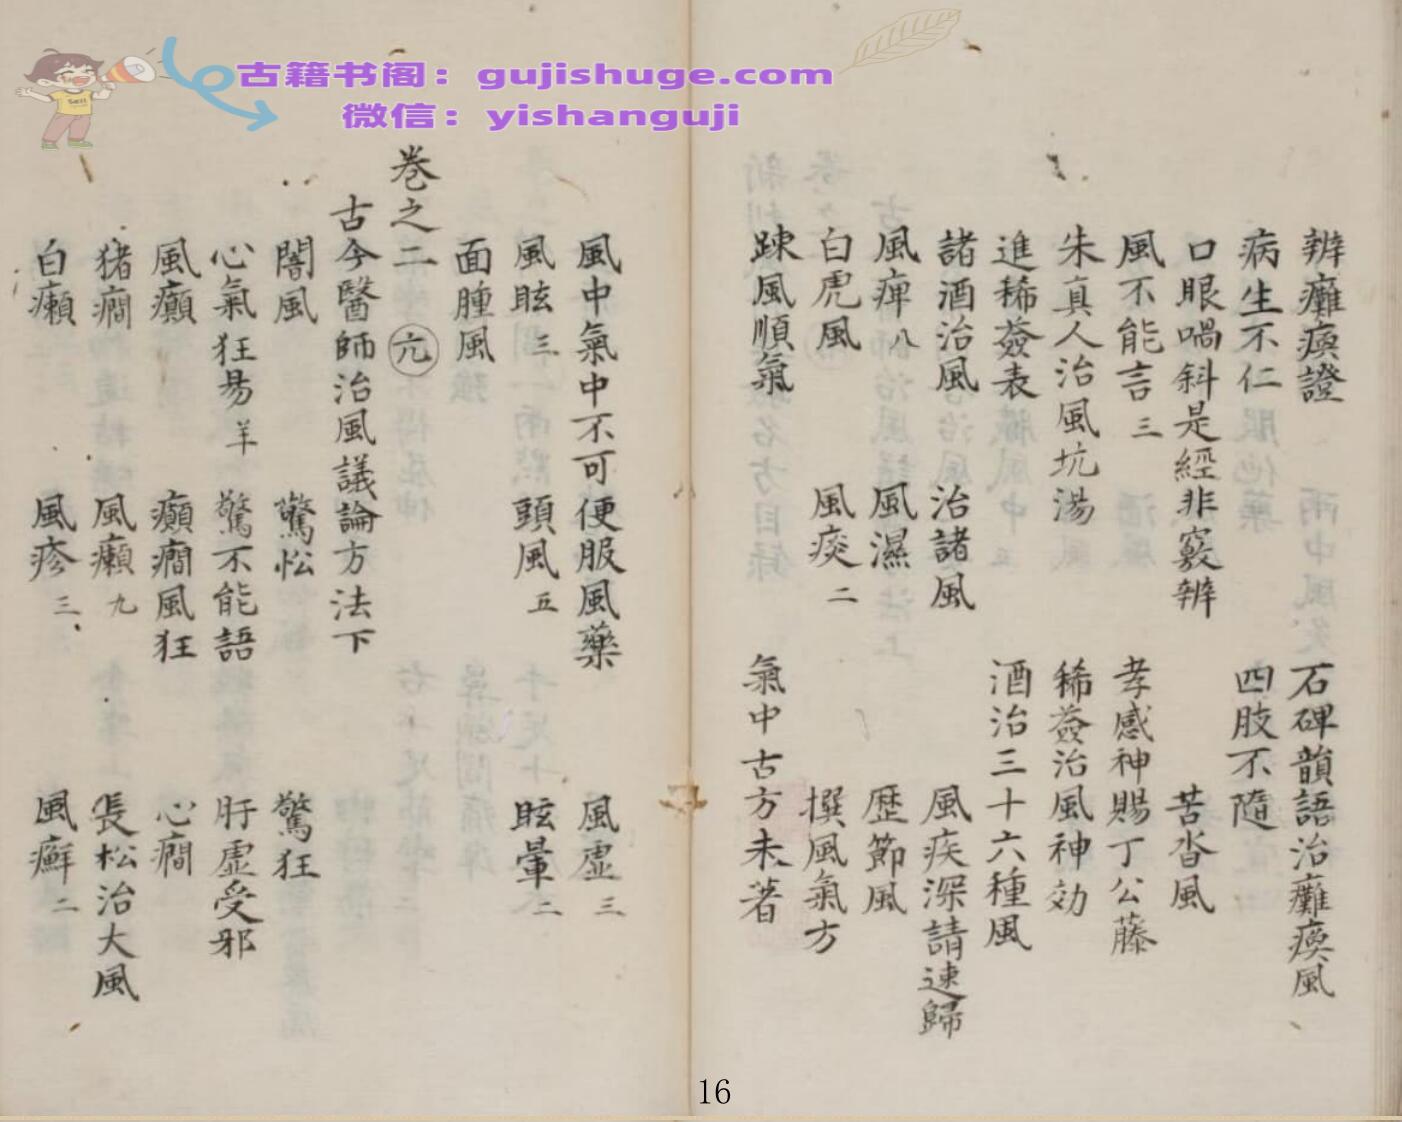 古籍书阁：gujishuge.com
微信：yishanguji
辨癱瘓證 石碑韻語治癱瘓風
病生不仁 四肢不隨
口眼喎斜是經非竅辨 苦沓風
風不能言三 孝感神賜丁公藤
朱真人治風坑湯 稀薟治風神効
進稀薟表 酒治三十六種風
諸酒治風 治諸風 風疾深請速歸
風痺八 風濕 歷節風
白虎風 風痰二 撰風氣方
踈風順氣 氣中古方未著
風中氣中不可便服風藥 風虛三
風眩三 頭風五 眩暈二
面腫風
卷之二 元
古今醫師治風議論方法下
闇風 驚忪 驚狂
心氣狂易羊 驚不能語 肝虛受邪
風癲 癲癇風狂 心癇
猪癇 風癩九 長松治大風
白癩 風疹三 風癬二
16